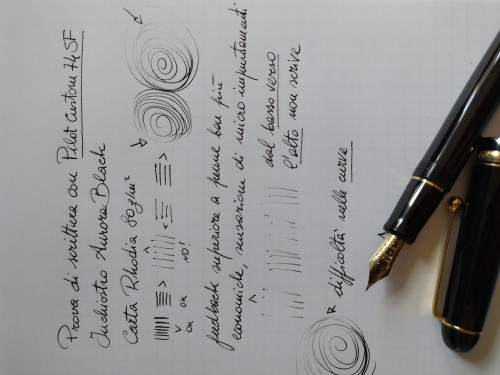 Prova di scrittura con Pilot Custom 74 SF
Inchiostro Aurora Black
Carta Rhodia 80 gm²
OK
OK
NO!
feedback superiore a penne ben più
economiche, sensazione di micro impuntamenti
dal basso verso
l'alto non scrive
difficoltà nelle curve